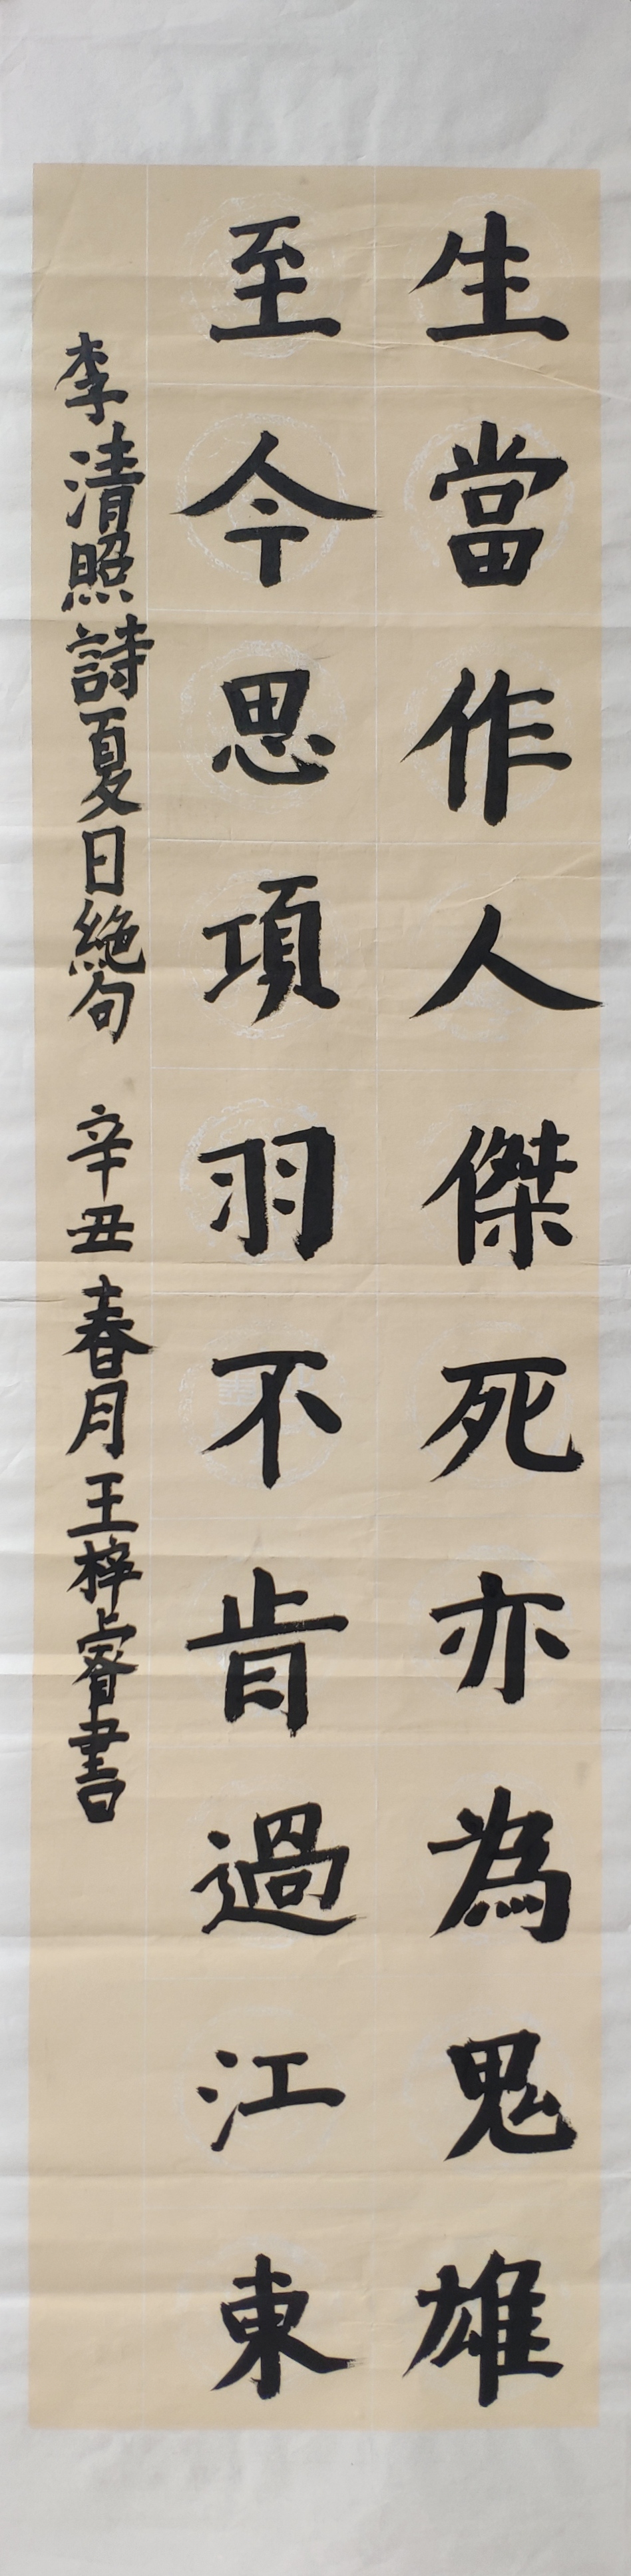 生當作人傑死亦為鬼雄
至今思項羽不肯過江東
李清照詩夏日絶句 辛丑春月王梓睿書